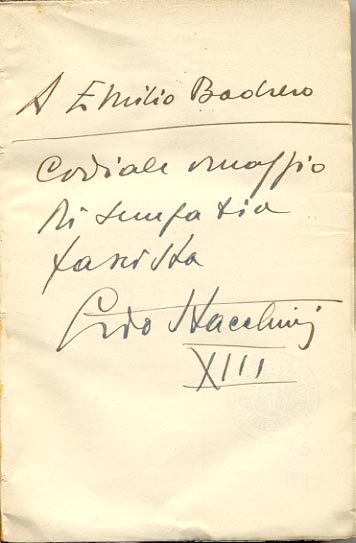 A Emilio Bodrero
Cordiale omaggio
di simpatia
fascista
Guido Stacchini
XIII